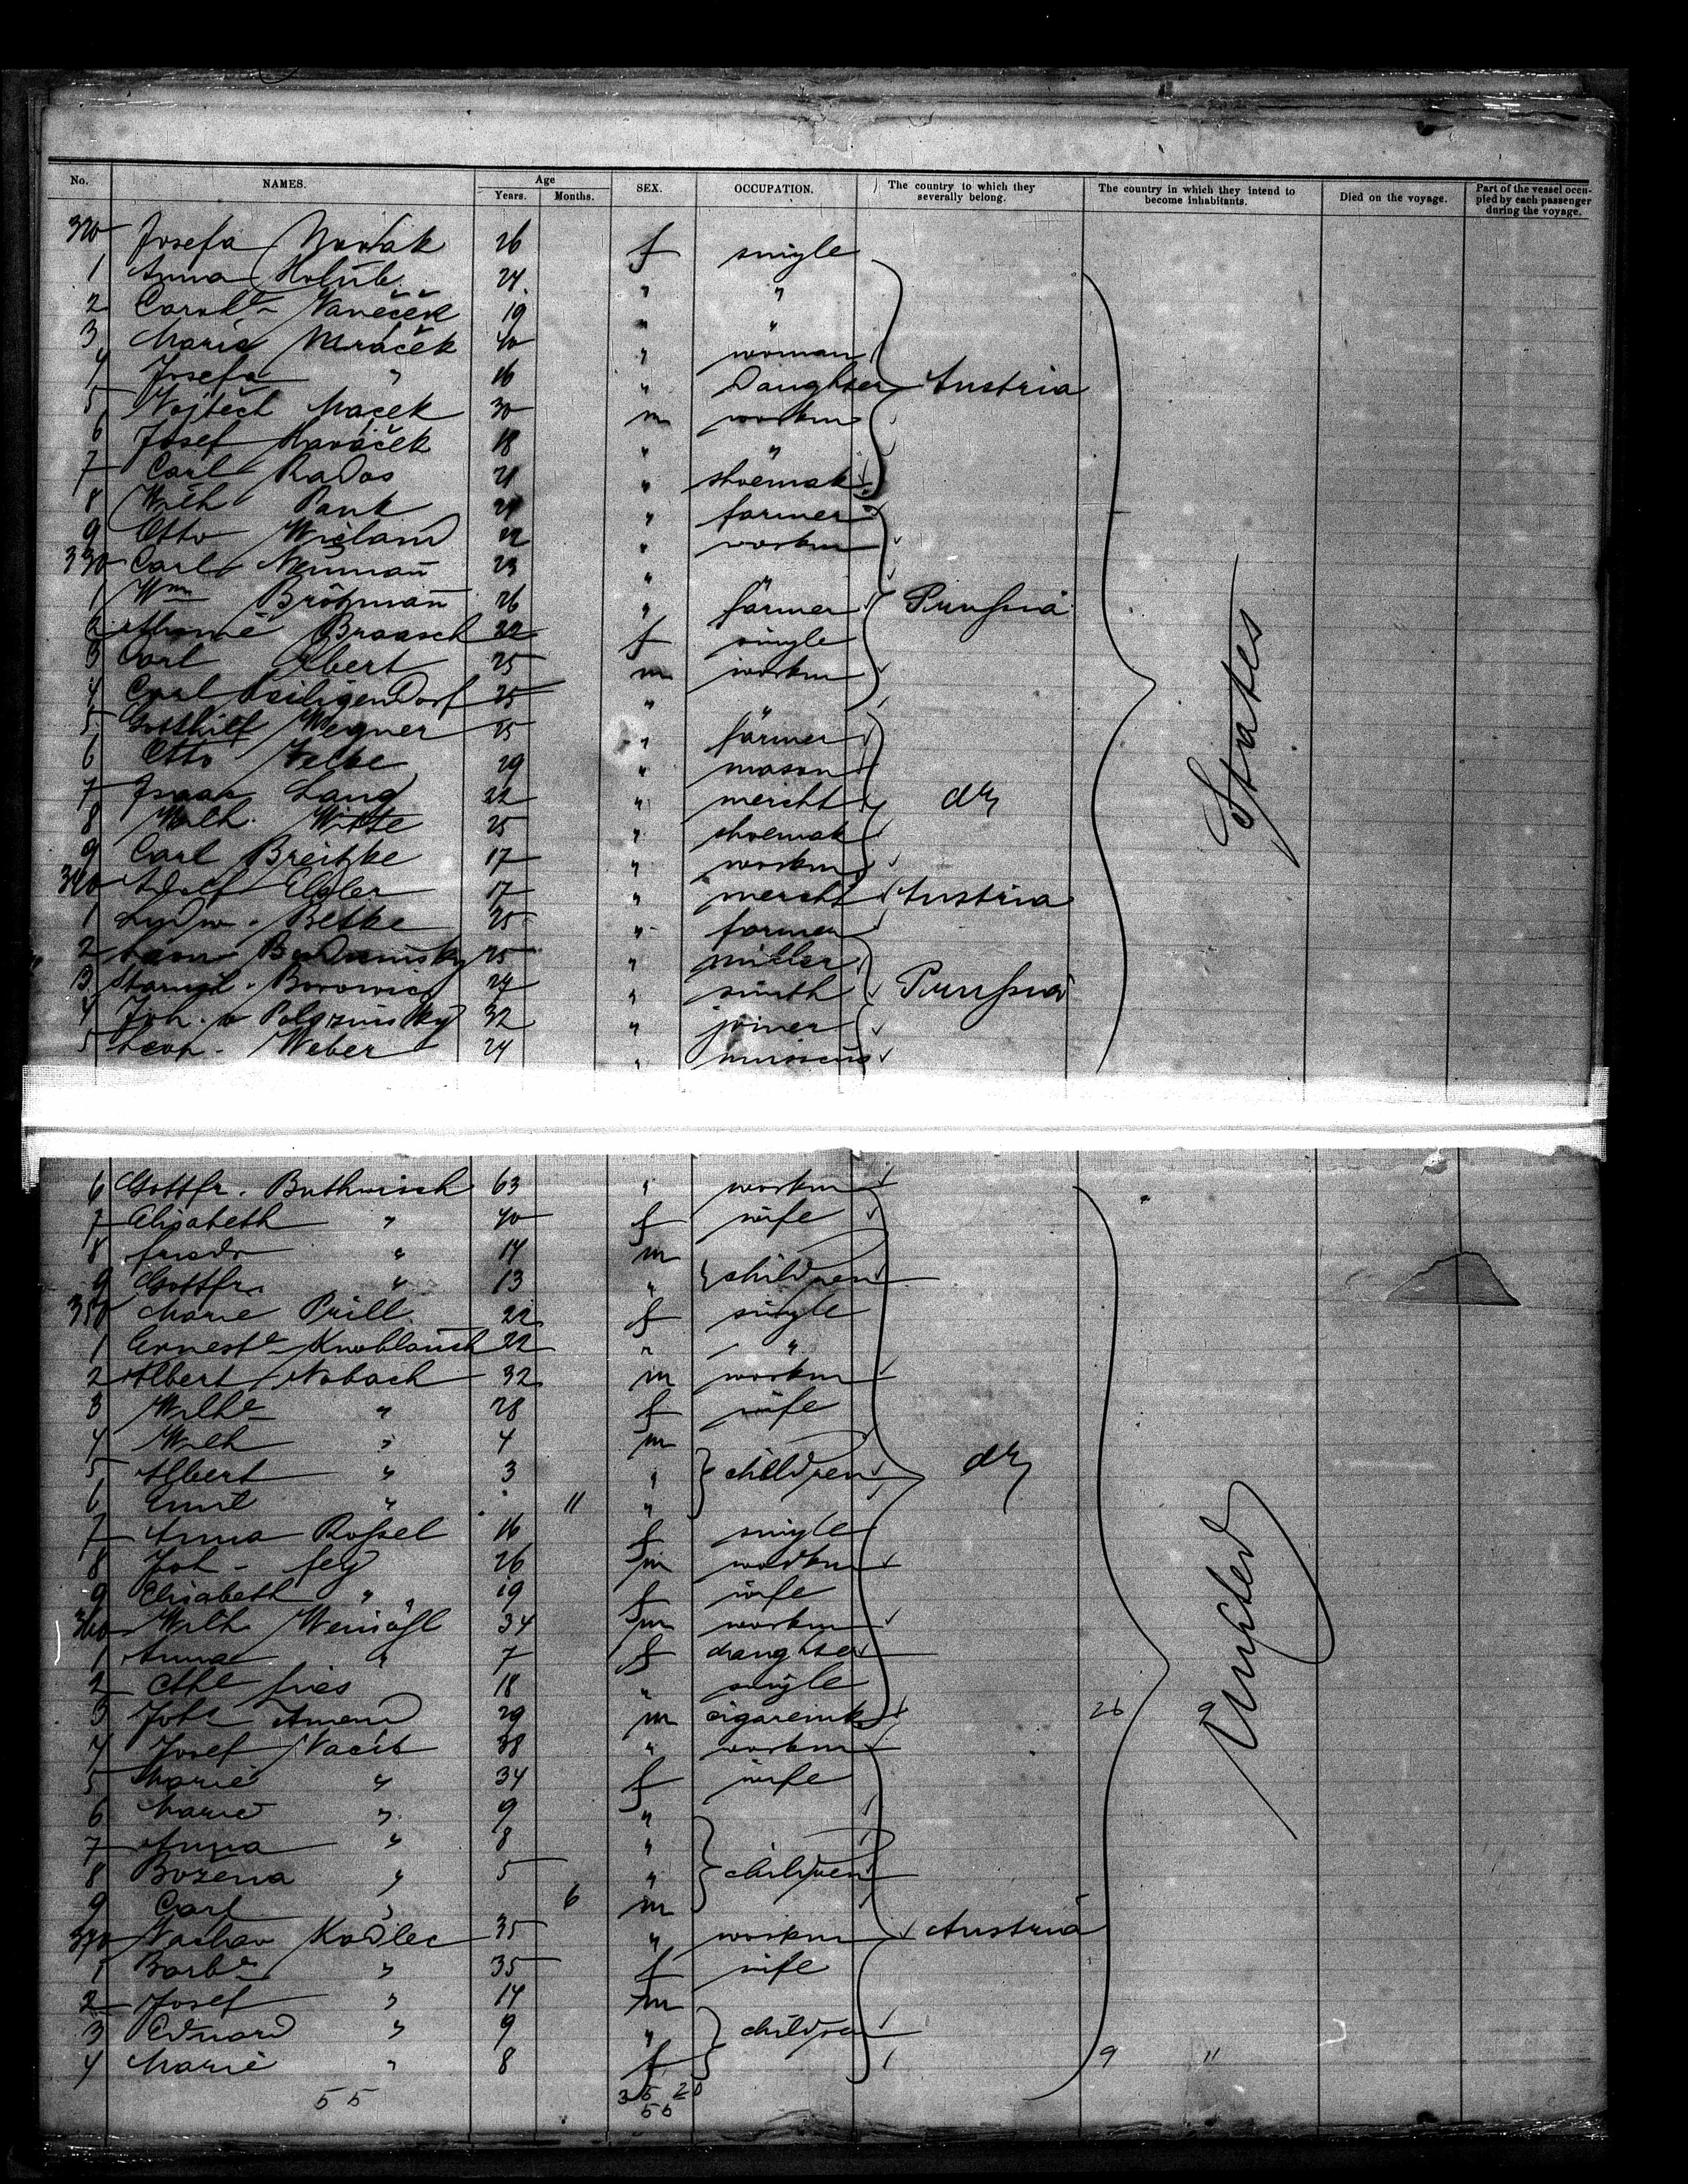 No. NAMES. Age Years. Months. SEX. OCCUPATION. The country to which they severally belong. The country in which they intend to become inhabitants. Died on the voyage. Part of the vessel occupied by each passenger during the voyage.
320 Josefa Novak 26 f single
1 Anna Holub 24 " "
2 Carole Vaněček 19 " "
3 Maria Mráček 40 " woman
4 Josefa " 16 " Daughter Austria
5 Vojtěch Macek 30 m workm
6 Josef 18 " "
7 Carl Rados 21 " shoemak
8 Wilh Pank 24 " farmer
9 Otto Wieland 22 " workm
330 Carl Neuman̄ 23 " "
1 Wm Brötzman̄ 26 " farmer Prussia
2 Braasch 22 f single
3 Carl Albert 25 m workm
4 Carl Heiligendorf 25 " "
5 Gotthilf Wegner 25 " farmer
6 Otto Velbe 29 " mason
7 Isaak Lang 22 " mercht do
8 Wilh. Witte 25 " shoemak
9 Carl Breitzke 17 " workm
340 Adolf 17 " mercht Austria
1 Ludw. Betke 25 " farmer
2 25 " miller
3 Stanisl. Borowicz 24 " smith Prussia
4 Joh. v 32 " joiner
5 Leop. Weber 24 " musicus
States
6 Gottfr. Buthwisch 63 " workm
7 Elisabeth " 40 f wife
8 " 14 m
9 Gottfr. " 13 " children
350 Marie Prill 22 f single
1 Erneste Knoblauch 22 " "
2 Albert Nobach 32 m workm
3 Wilhe " 28 f wife
4 Wilh " 4 m
5 Albert " 3 " children do
6 Emil " 11 "
7 Anna Rossel 16 f single
8 Joh. Fey 26 m workm
9 Elisabeth " 19 f wife
360 Wilh. 34 m workm
1 Anna " 7 f daughter
2 18 " single
3 Amend 29 m cigaremk 26 9
4 Josef Vacit 38 " workm
5 Marie " 34 f wife
6 Marie " 9 "
7 Anna " 8 "
8 Bozena " 5 " children
9 Carl " 6 m
370 Vaclav Kadlec 35 " workm Austria
1 Barbe " 35 f wife
2 Josef " 14 m
3 Eduard " 9 " children
4 Marie " 8 f 9 "
United
55 35 20
55